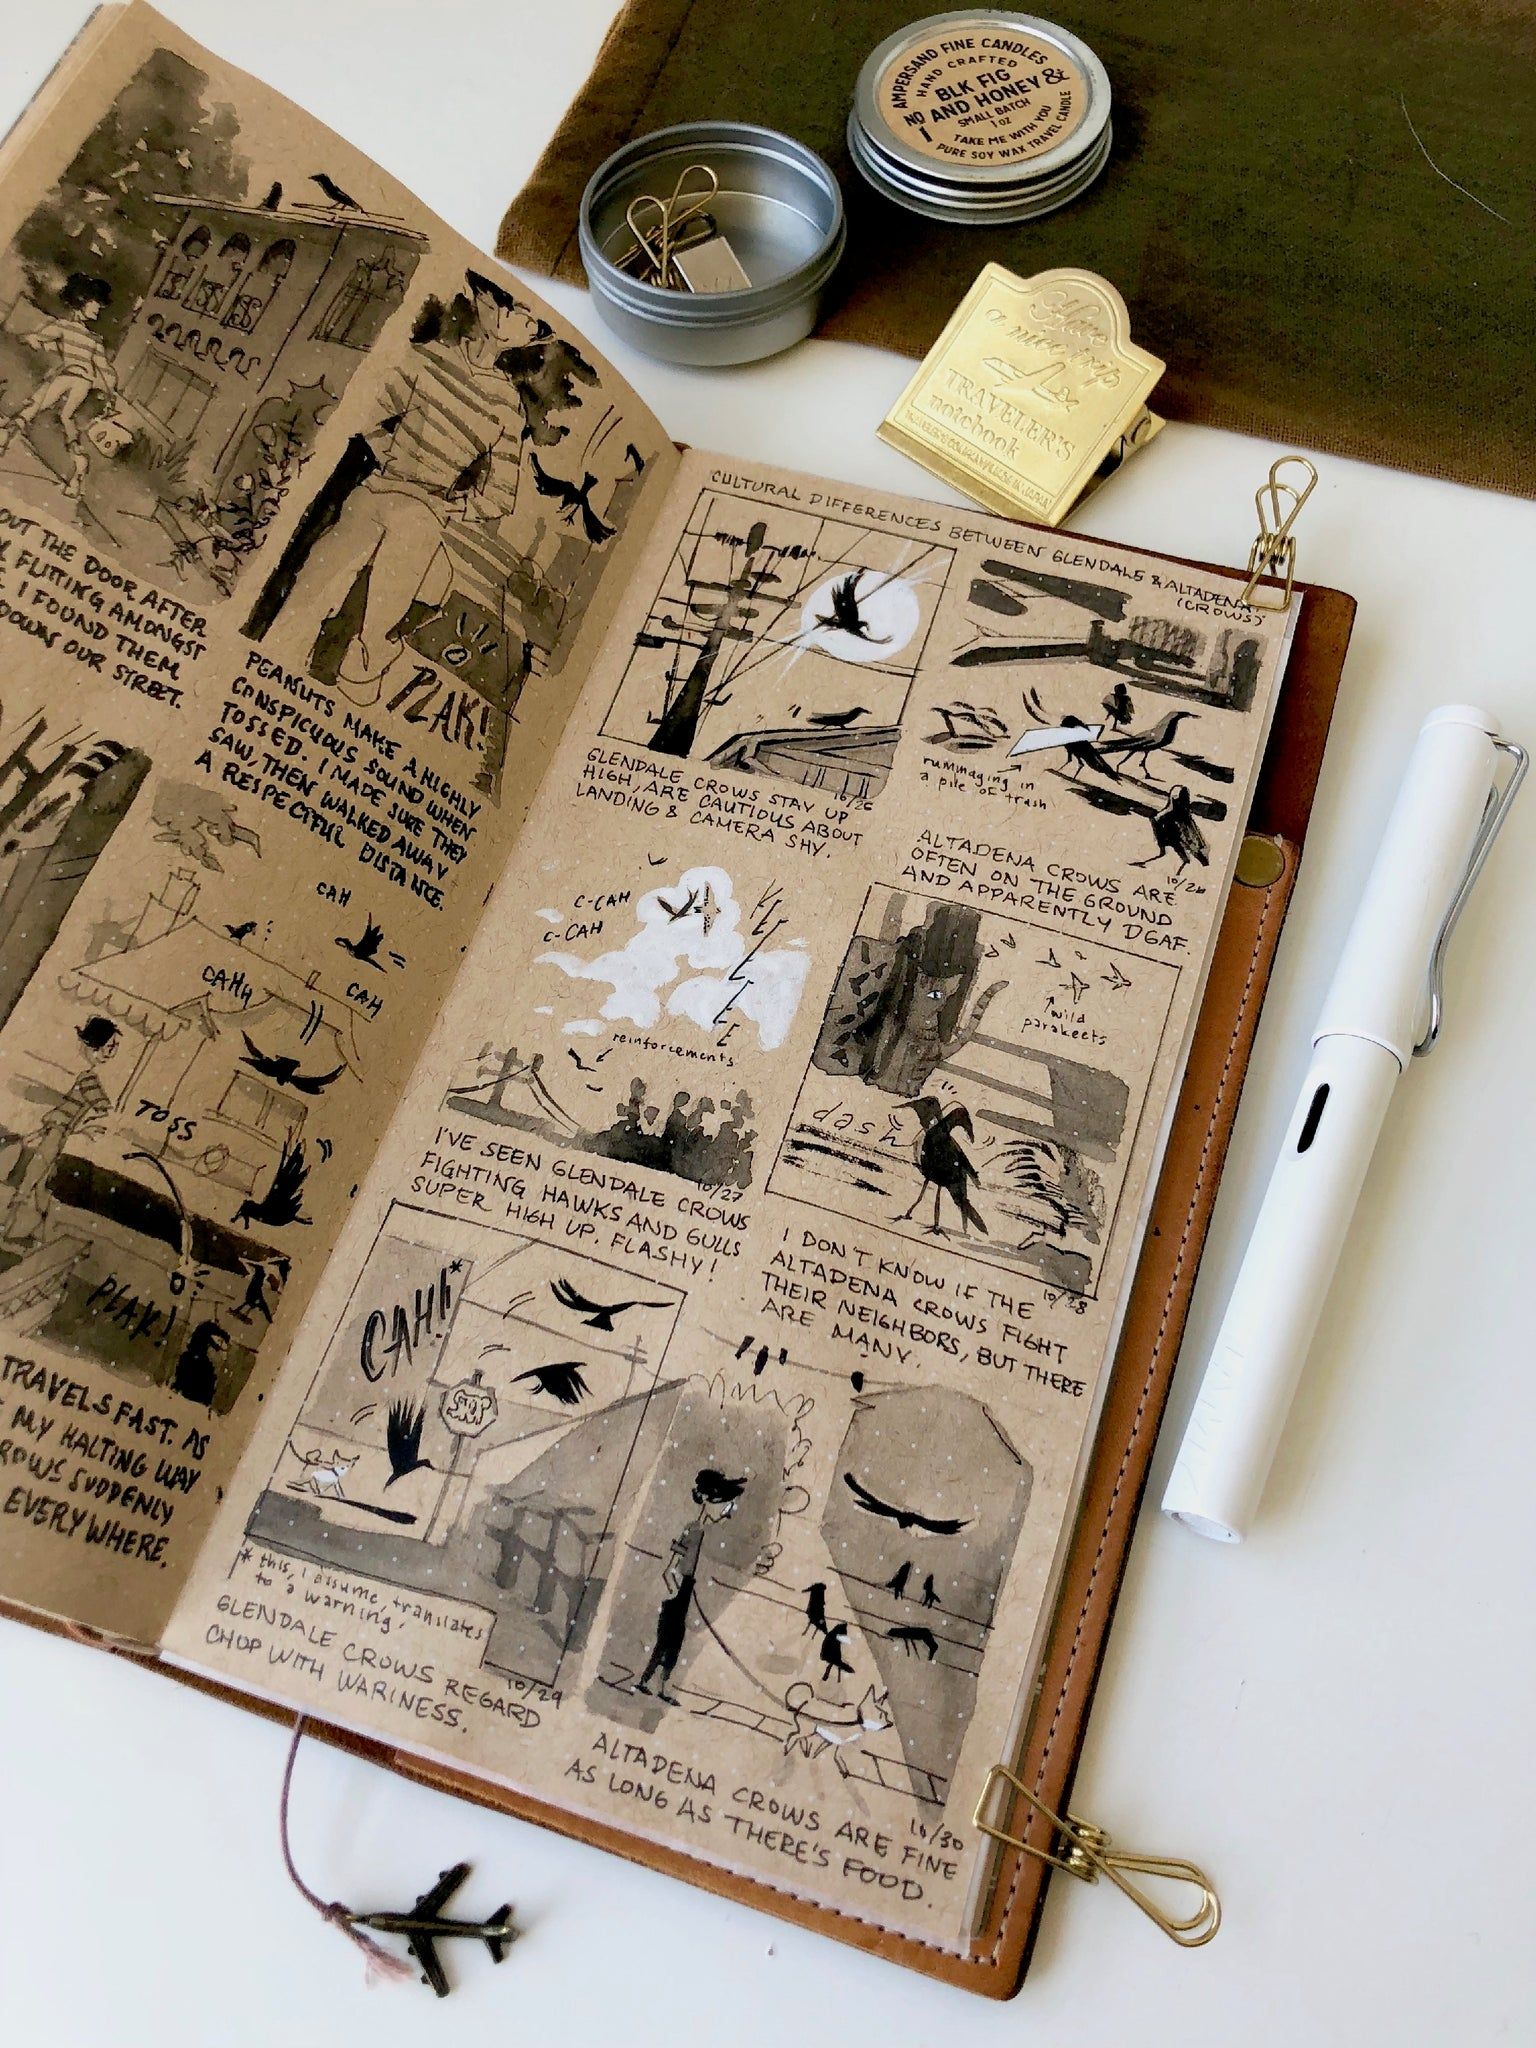 AMPERSAND FINE CANDLES
HAND CRAFTED
BLK FIG
NO AND HONEY &
1 SMALL BATCH
1 OZ
TAKE ME WITH YOU
PURE SOY WAX TRAVEL CANDLE
Have
a nice trip
TRAVELER'S
notebook
OUT THE DOOR AFTER
FLITTING AMONGST
I FOUND THEM
DOWN OUR STREET.
PLAK!
PEANUTS MAKE A HIGHLY
CONSPICUOUS SOUND WHEN
TOSSED. I MADE SURE THEY
SAW, THEN WALKED AWAY
A RESPECTFUL DISTANCE.
CAH
CAHH
CAH
TOSS
PLAK!
TRAVELS FAST. AS
MY HALTING WAY
ROWS SUDDENLY
EVERYWHERE.
CULTURAL DIFFERENCES BETWEEN GLENDALE & ALTADENA
(CROWS)
10/26
GLENDALE CROWS STAY UP
HIGH, ARE CAUTIOUS ABOUT
LANDING & CAMERA SHY.
rummaging in
a pile of trash
10/26
ALTADENA CROWS ARE
OFTEN ON THE GROUND
AND APPARENTLY DGAF.
C-CAH
C-CAH
KEEEEE
reinforcements
10/27
I'VE SEEN GLENDALE CROWS
FIGHTING HAWKS AND GULLS
SUPER HIGH UP. FLASHY!
wild
parakeets
dash
10/28
I DON'T KNOW IF THE
ALTADENA CROWS FIGHT
THEIR NEIGHBORS, BUT THERE
ARE MANY.
CAH!*
STOP
* this, i assume, translates
to a warning.
10/29
GLENDALE CROWS REGARD
CHUP WITH WARINESS.
10/30
ALTADENA CROWS ARE FINE
AS LONG AS THERE'S FOOD.